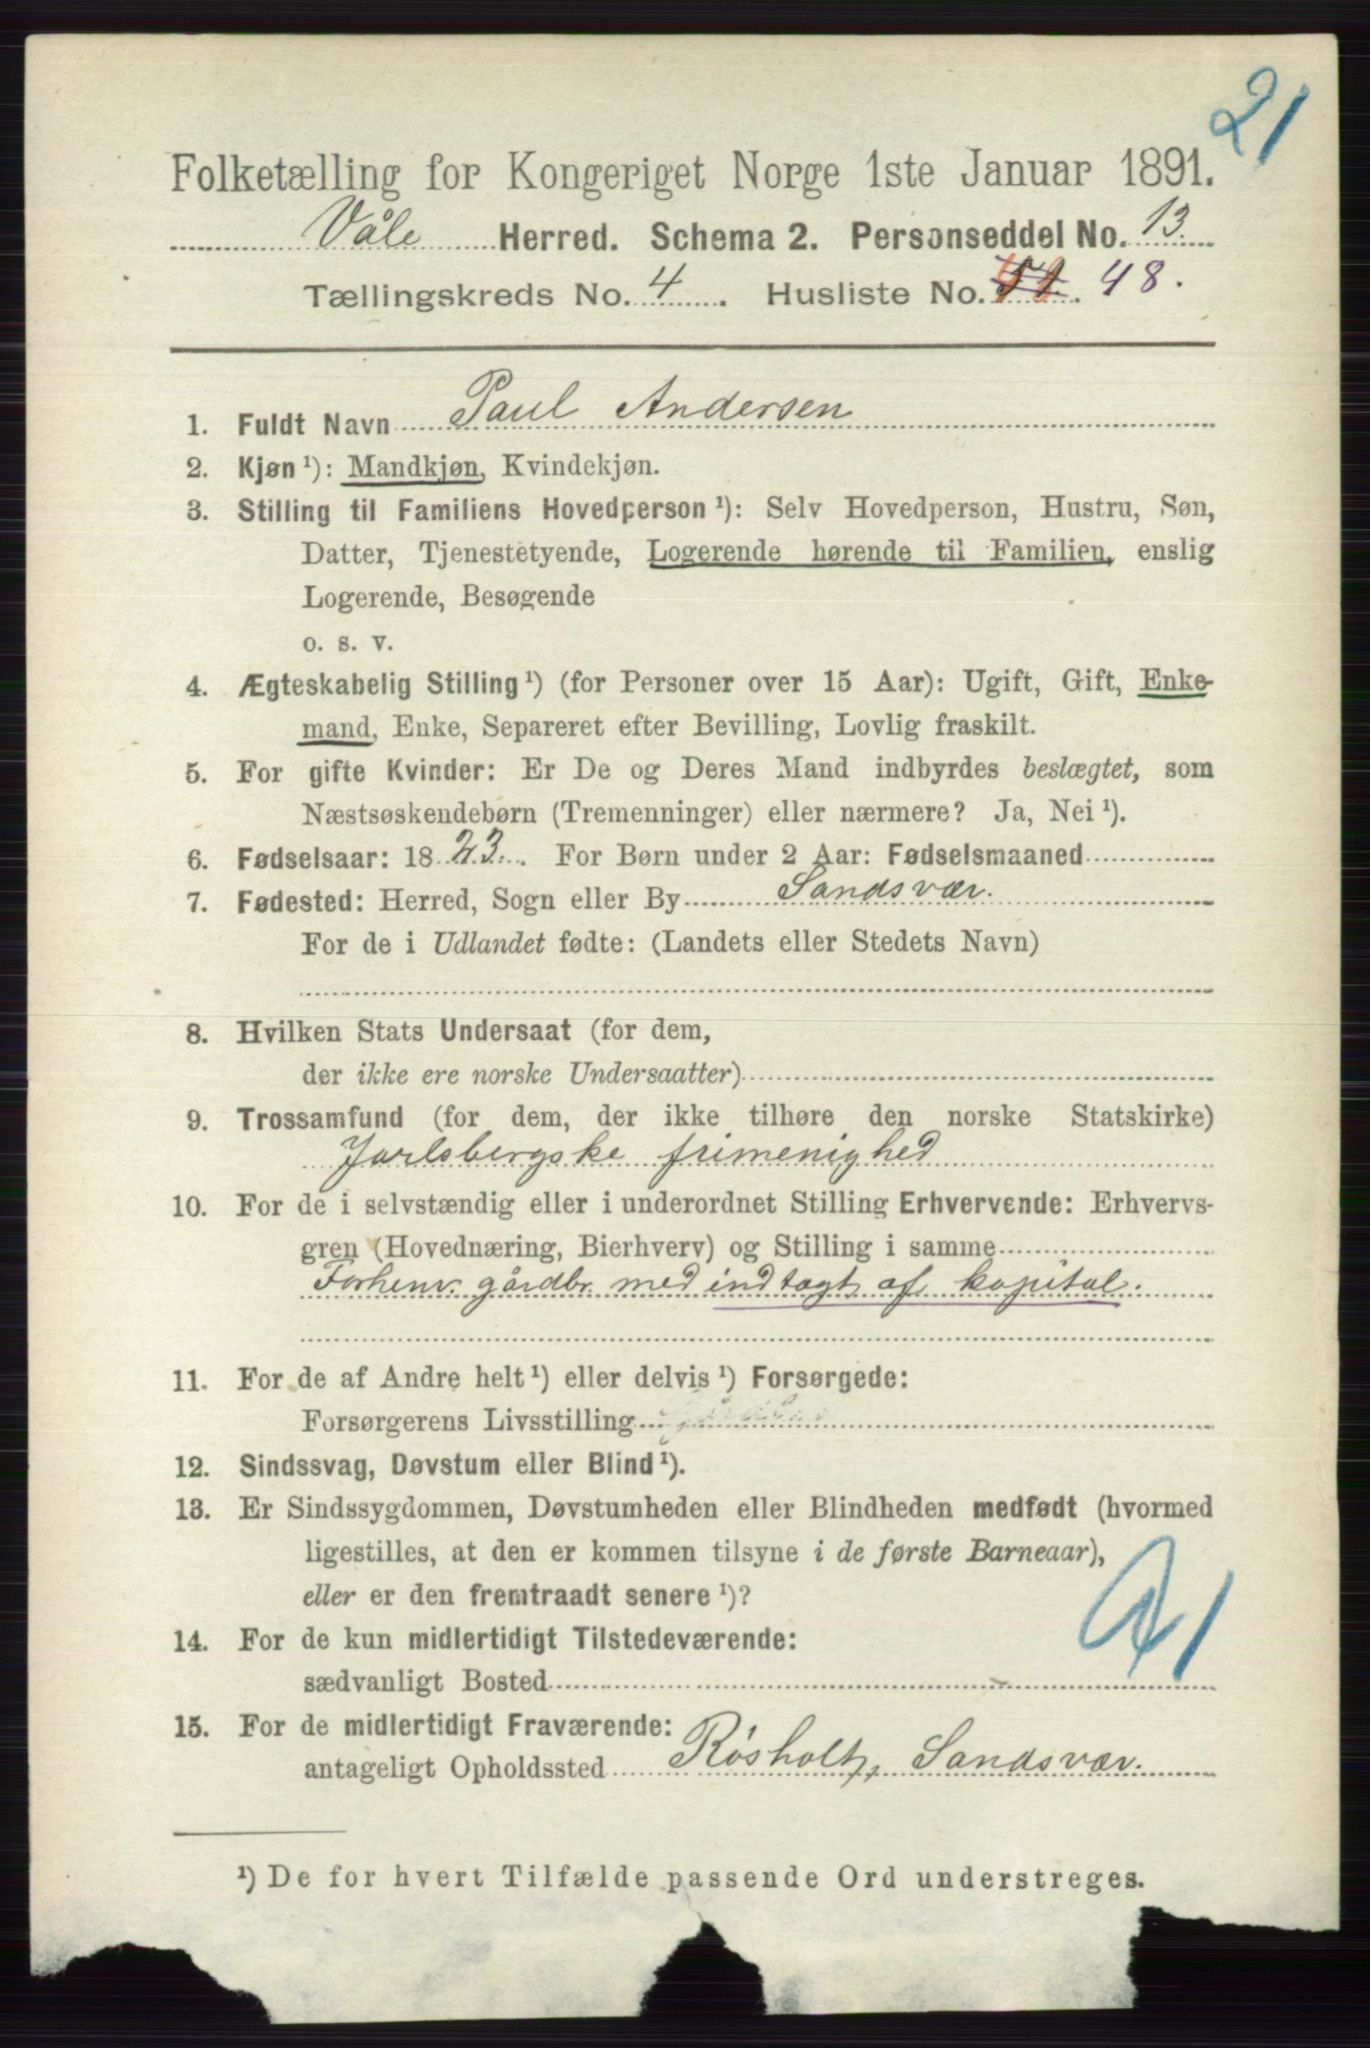 21
Folketælling for Kongeriget Norge 1ste Januar 1891.
Våle Herred. Schema 2. Personseddel No. 13.
Tællingskreds No. 4. Husliste No. 48.
1. Fuldt Navn Paul Andersen
2. Kjøn ¹): Mandkjøn, Kvindekjøn.
3. Stilling til Familiens Hovedperson ¹): Selv Hovedperson, Hustru, Søn,
Datter, Tjenestetyende, Logerende hørende til Familien, enslig
Logerende, Besøgende
o. s. v.
4. Ægteskabelig Stilling ¹) (for Personer over 15 Aar): Ugift, Gift, Enke-
mand, Enke, Separeret efter Bevilling, Lovlig fraskilt.
5. For gifte Kvinder: Er De og Deres Mand indbyrdes beslægtet, som
Næstsøskendebørn (Tremenninger) eller nærmere? Ja, Nei ¹).
6. Fødselsaar: 1823. For Børn under 2 Aar: Fødselsmaaned
7. Fødested: Herred, Sogn eller By Sandsvær.
For de i Udlandet fødte: (Landets eller Stedets Navn)
8. Hvilken Stats Undersaat (for dem,
der ikke ere norske Undersaatter)
9. Trossamfund (for dem, der ikke tilhøre den norske Statskirke)
Jarlsbergske frimenighed
10. For de i selvstændig eller i underordnet Stilling Erhvervende: Erhvervs-
gren (Hovednæring, Bierhverv) og Stilling i samme
Forhenv. gårdbr. med indtægt af kapital.
11. For de af Andre helt ¹) eller delvis ¹) Forsørgede:
Forsørgerens Livsstilling
12. Sindssvag, Døvstum eller Blind ¹).
13. Er Sindssygdommen, Døvstumheden eller Blindheden medfødt (hvormed
ligestilles, at den er kommen tilsyne i de første Barneaar),
eller er den fremtraadt senere ¹)?
14. For de kun midlertidigt Tilstedeværende:
sædvanligt Bosted
15. For de midlertidigt Fraværende:
antageligt Opholdssted Røsholt, Sandsvær.
¹) De for hvert Tilfælde passende Ord understreges.